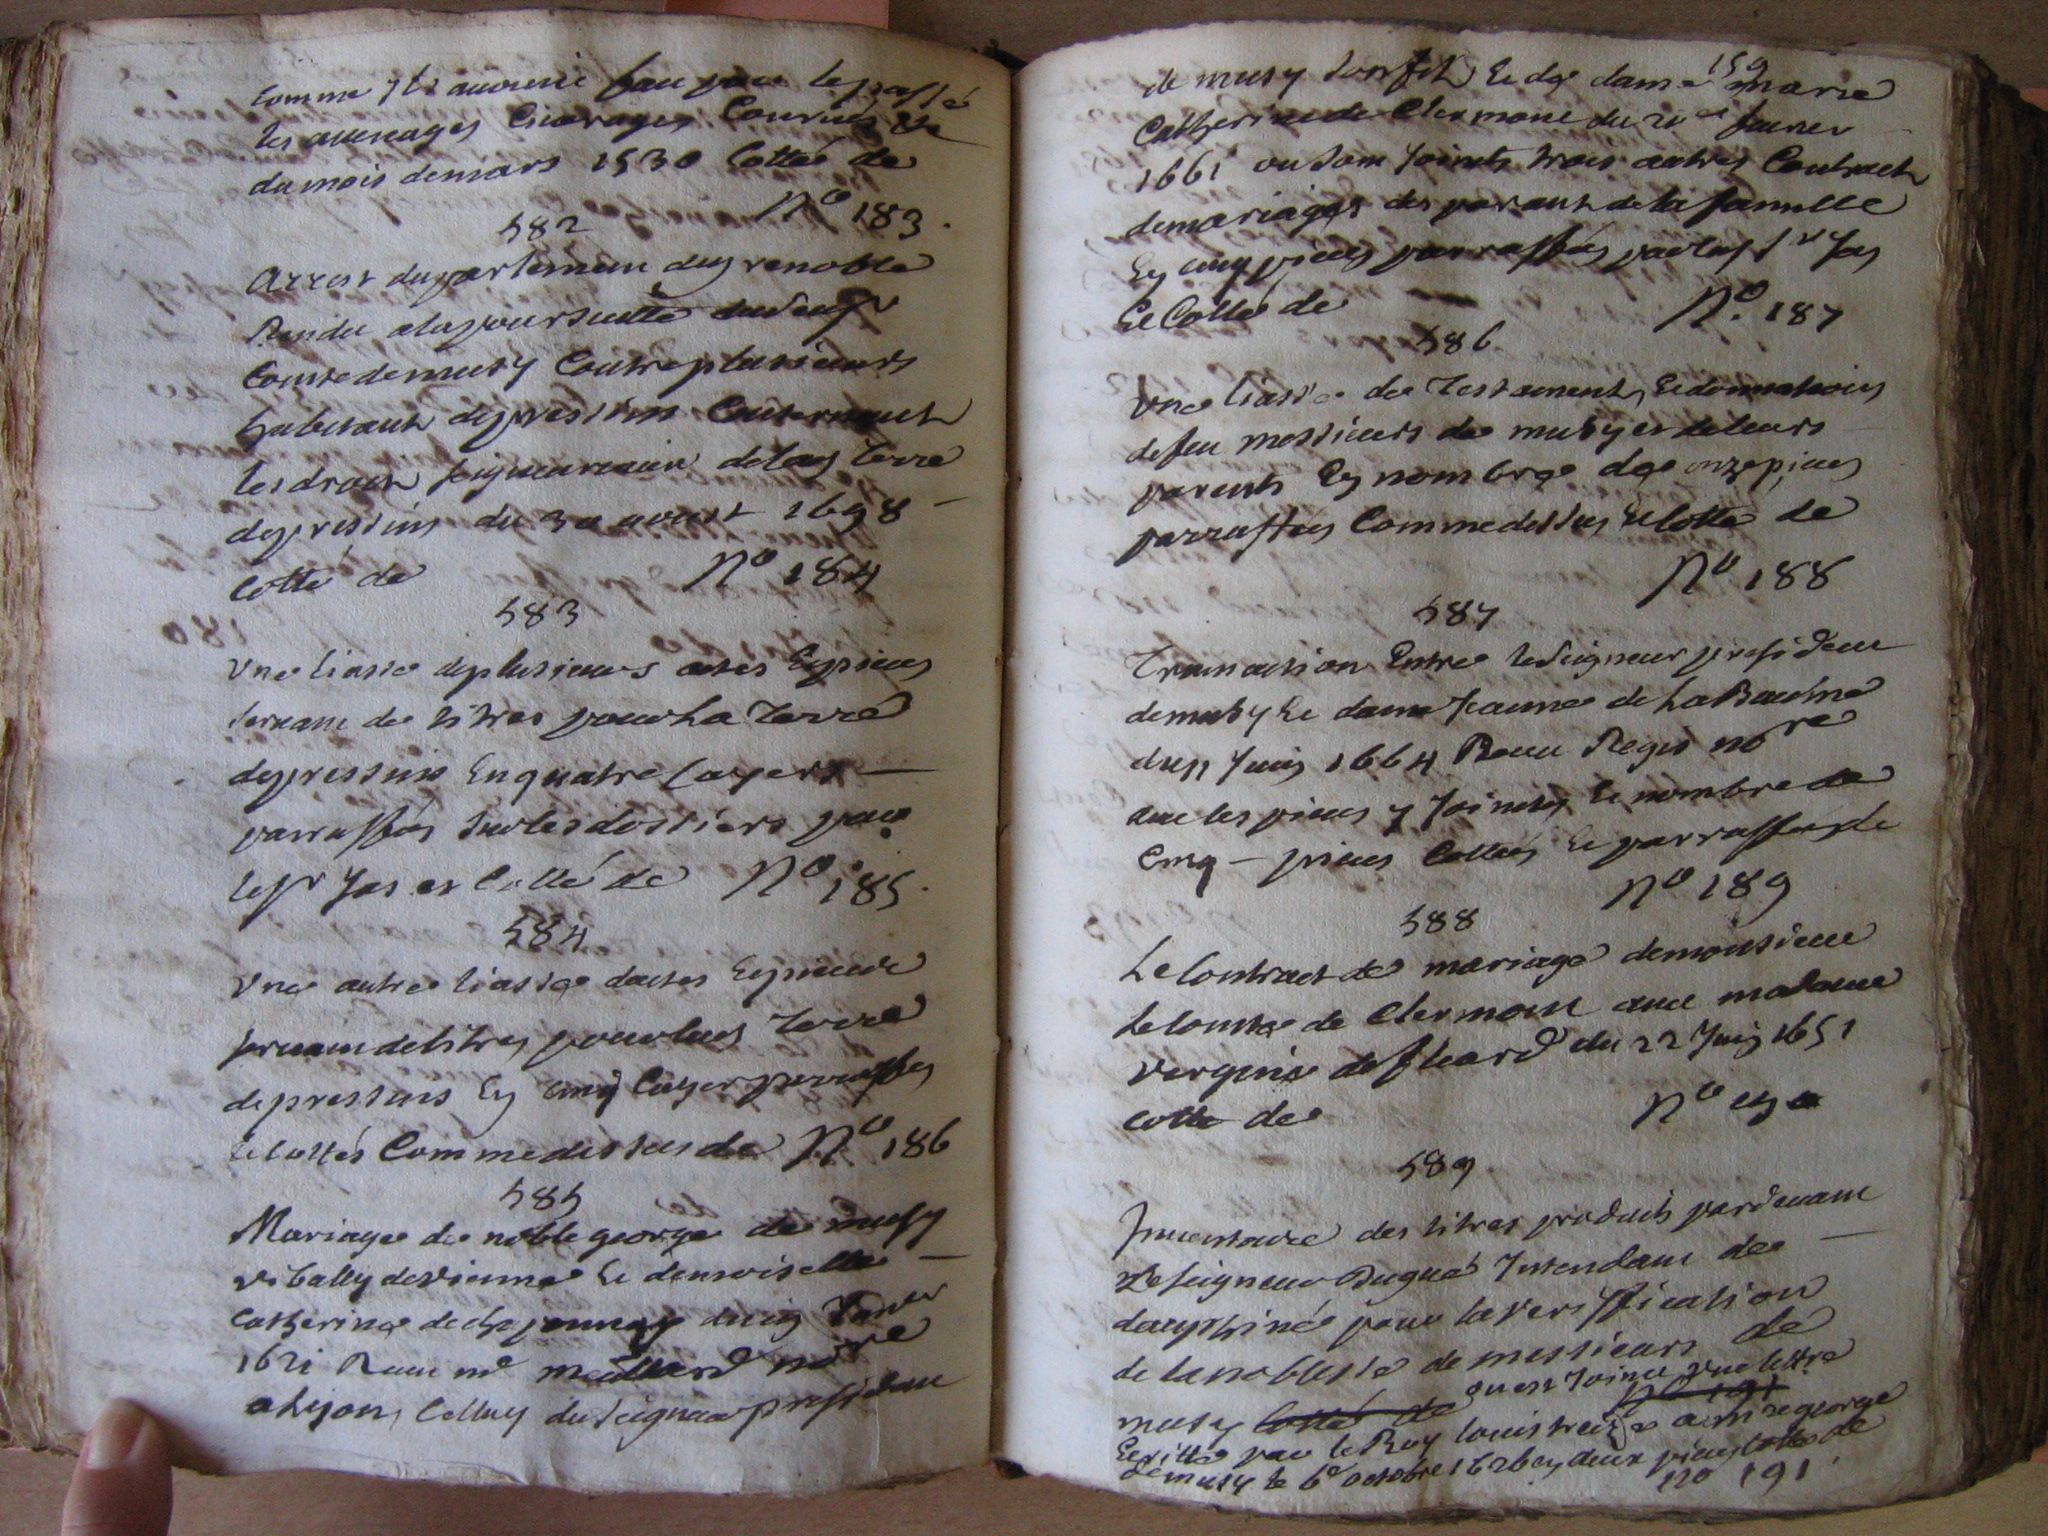 comme ils avoient fait par le passé
les auenages Ciuerages Couruées &c
du mois de mars 1530 Cotté de
N° 183.
582
Arrest du parlement de grenoble
Rendu a la poursuitte dud seigr
Comte de musy Contre plusieurs
habitants de pressins Concernant
les droits seigneuriaux de lad Terre
de pressins du 30 aoust 1698 —
cotté de N° 184
583
Vne liasse de plusieurs actes Et pieces
seruant de titres pour La Terre
de pressins En quatre Cayers —
parraffés sur les dossiers par
le sr Jas et Cotté de N° 185.
584
Vne autre liasse dactes Et pieces
seruant de titres pour lad Terre
de pressins En cinq Cayer parraffés
Et Cottés Comme dessus de N° 186
585
Mariage de noble george de musy
vibally de Vienne Et demoiselle —
Catherine de du Januier
1621 Receu me notre
a Lyon, Celluy du seigneur president
159
de musy son fils Et de dame marie
Catherine de Clermont du feurier
1661 ou sont Joints trois autres Contracts
de mariages des parants de la famille
En cinq pieces parraffés par led sr Jas
Et Cotté de N° 187
586
Vne liasse de Testaments Et donnations
de feu messieurs de musy et de leurs
parents En nombre de onze pieces
parraffées Comme dessus Et Cotté de
N° 188
587
Transaction Entre le seigneur president
de musy Et dame Jeanne de La Baume
du Juin 1664 Receu Regis notre
auec les pieces y Jointes Et nombre de
Cinq — pieces Cottées Et parraffées de
N° 189
588
Le Contract de mariage de monsieur
le Comte de Clermont auec madame
Virginie de fleard du 22 Juin 1651
cotté de N° 190
589
Inuentaire des titres produits pardeuant
le seigneur Dugué Intendant de —
dauphiné pour la veriffication
de la noblesse de messieurs de
musy cotté de ou est Jointe vne lettre
N° 191
Escritte par le Roy louis treize a mre george
de musy le 6e octobre 1626 En deux pieces Cotté de
N° 191.